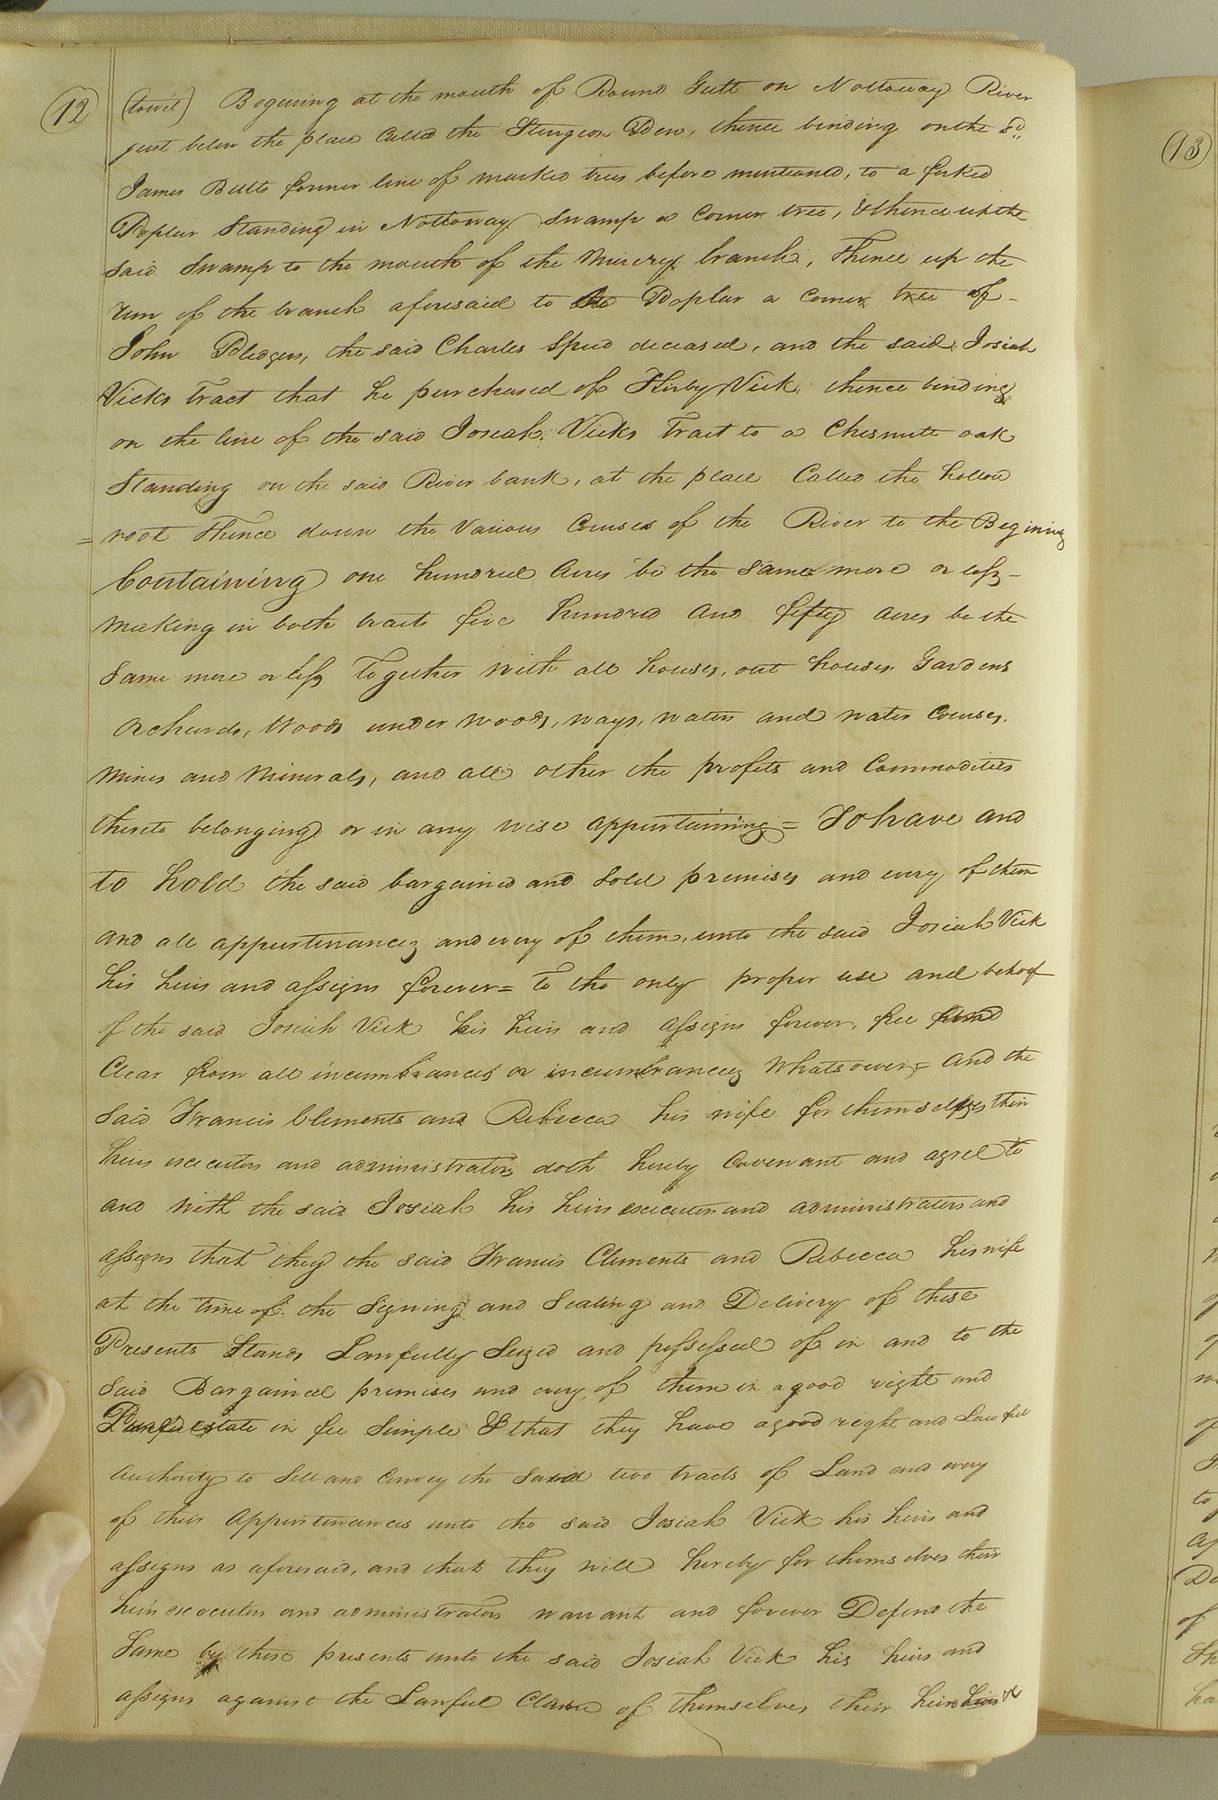 12
(towit) Begining at the mouth of Round Gutt on Nottoway River
just below the place Called the Sturgeon Den, thence binding on the sd.
James Butts former line of marked trees before mentioned, to a forked
Poplar Standing in Nottoway Swamp a Corner tree, & thence up the
said Swamp to the mouth of the branch, Thence up the
run of the branch aforesaid to the Poplar a Corner tree of
John Pledger, the said Charles Speed deceased, and the said Josiah
Vicks tract that he purchased of Kirby Vick, thence binding
on the line of the said Josiah Vicks tract to a Chesnutt oak
Standing on the said River bank, at the place Called the hollow
= root Thence down the Various Courses of the River to the Begining
Containing one hundred Acres be the same more or less -
making in both tracts five hundred and fifty acres be the
same more or less Together with all houses, out houses, Gardens
orchards, Woods under woods, ways, waters and water courses,
mines and Minerals, and all other the profits and Commodities
thereto belonging or in any wise appurtaining = To have and
to hold the said bargained and Sold premises and every of them
and all appurtenances and every of them, unto the said Josiah Vick
his heirs and assigns forever = to the only proper use and behoof
of the said Josiah Vick his heirs and assigns forever, free and
Clear from all incumbrances or incumbrances Whatsoever = and the
said Francis Clements and Rebecca his wife for themselves their
heirs executors and administrators doth hereby Covenant and agree to
and with the said Josiah his heirs executors and administrators and
assigns that they the said Francis Clements and Rebecca his wife
at the time of the Signing and Sealing and Delivery of these
Presents Stands Lawfully Seized and possessed of in and to the
said Bargained premises and every of them in a good right and
estate in fee Simple & that they have a good right and Lawfull
Authority to Sell and Convey the said two tracts of Land and every
of their Appurtenances unto the said Josiah Vick his heirs and
assigns as aforesaid, and that they will hereby for themselves their
heirs executors and administrators warrant and forever Defend the
Same by these presents unto the said Josiah Vick his heirs and
assigns against the Lawful Claim of themselves their heirs
13